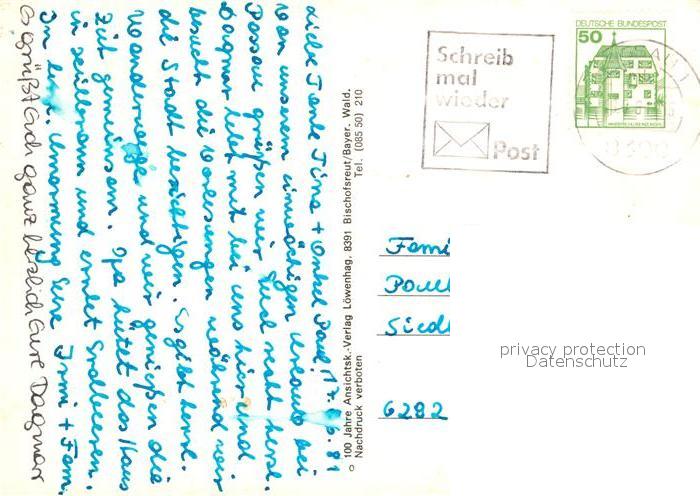 Liebe Tante Tina + Onkel Paul! 17.6.81
Von unserem Urlaub bei
Passau grüßen wir Euch recht herzl.
Dagmar lebt mit bei uns hier und
besucht die Vorlesungen während wir
die Stadt besichtigen. Es gibt herrl.
Wanderwege und wir genießen die
Zeit gemeinsam. Opa hütet das Haus
in und erntet Erdbeeren.
In Umarmung Eure Irmi + Fam.
Es grüßt Euch ganz herzlich Eure Dagmar
© 100 Jahre Ansichtsk.-Verlag Löwenhag, 8391 Bischofsreut/Bayer. Wald,
Nachdruck verboten Tel. (085 50) 210
Schreib
mal
wieder
Post
DEUTSCHE BUNDESPOST
50
Fami
Paul
Siedl
6282
privacy protection
Datenschutz